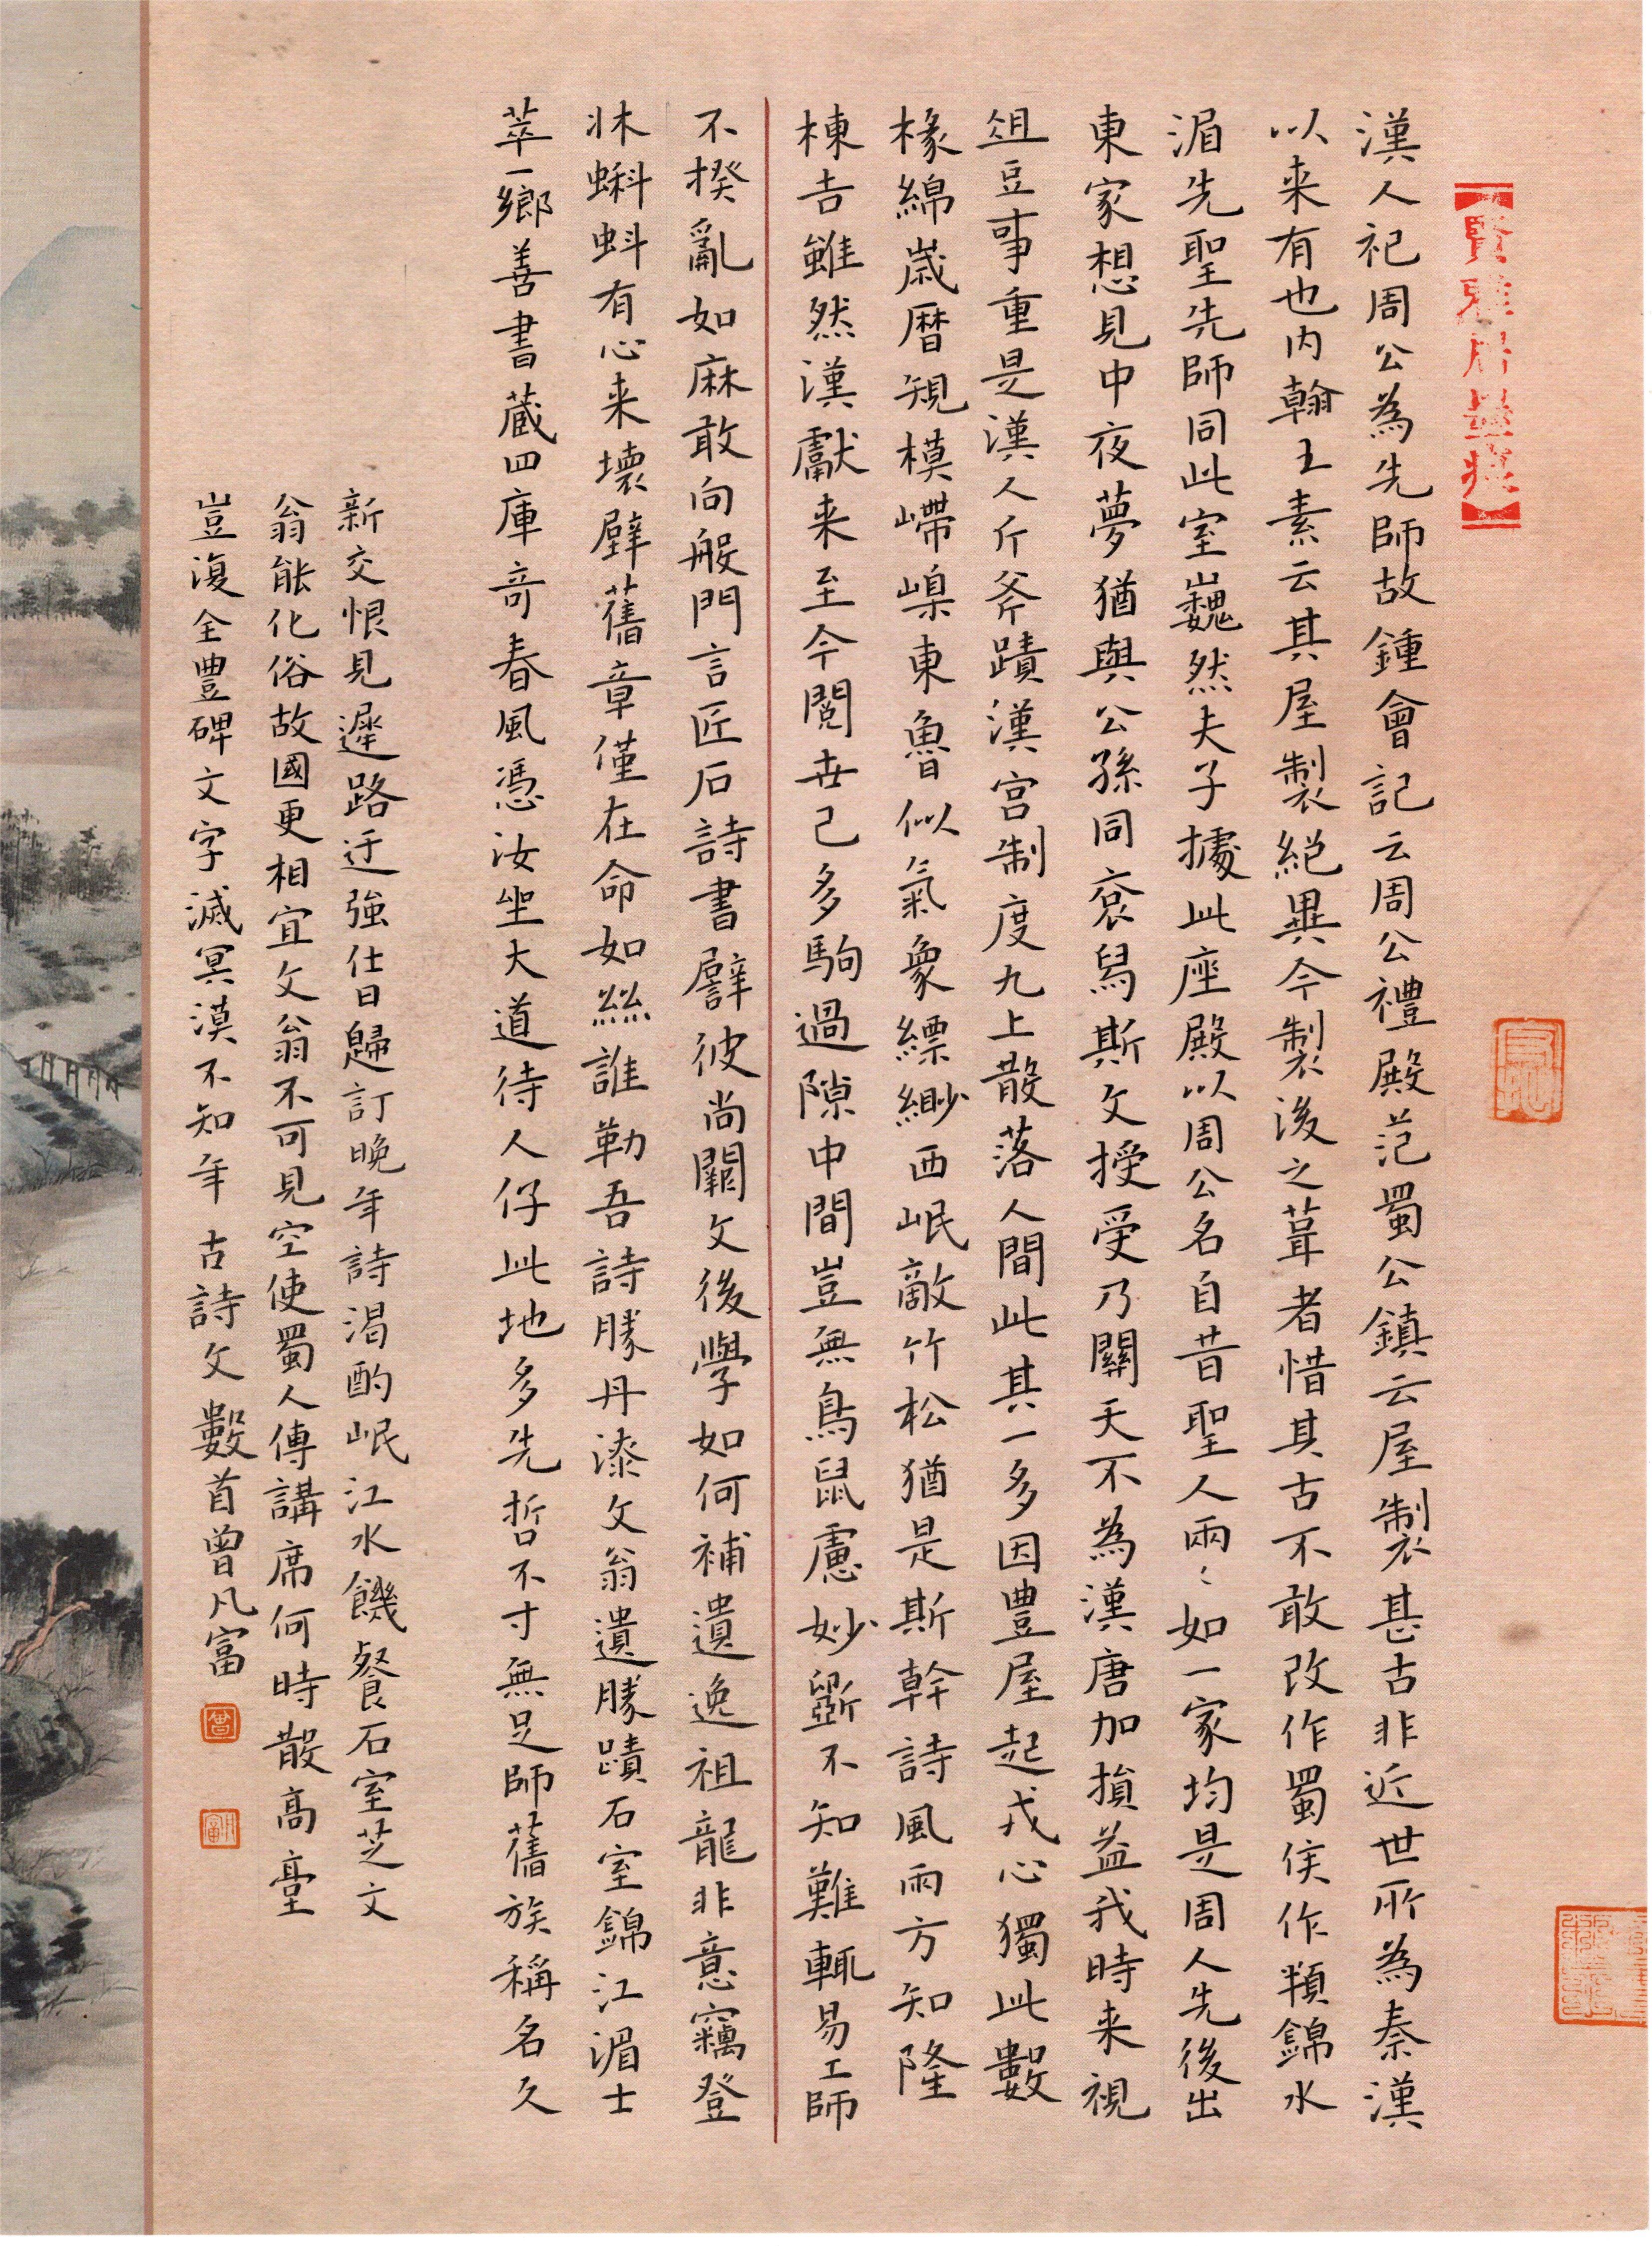 漢人祀周公為先師故鍾會記云周公禮殿范蜀公鎮云屋製甚古非近世所為秦漢
以来有也内翰王素云其屋製絕異今製後之葺者惜其古不敢改作蜀侯作頖錦水
湄先聖先師同此室巍然夫子據此座殿以周公名自昔聖人兩〻如一家均是周人先後出
東家想見中夜夢猶與公孫同袞舄斯文授受乃關天不為漢唐加損益我時来視
俎豆事重是漢人斤斧蹟漢宮制度九上散落人間此其一多因豐屋起戎心獨此數
椽綿歲曆規模嵽嵲東魯似氣象縹緲西岷敵竹松猶是斯幹詩風雨方知隆
棟吉雖然漢獻来至今閱世已多駒過隙中間豈無鳥鼠慮妙斲不知難輒易工師
不揆亂如麻敢向般門言匠石詩書譬彼尚闕文後學如何補遺逸祖龍非意竊登
牀蝌蚪有心来壞壁舊章僅在命如絲誰勒吾詩勝丹漆文翁遺勝蹟石室錦江湄士
萃一鄉善書藏四庫奇春風憑汝坐大道待人仔此地多先哲不寸無足師舊族稱名久
新交恨見遲路迂強仕日歸訂晚年詩渴酌岷江水饑餐石室芝文
翁能化俗故國更相宜文翁不可見空使蜀人傳講席何時散高臺
豈復全豊碑文字滅冥漠不知年 古詩文數首曾凡富